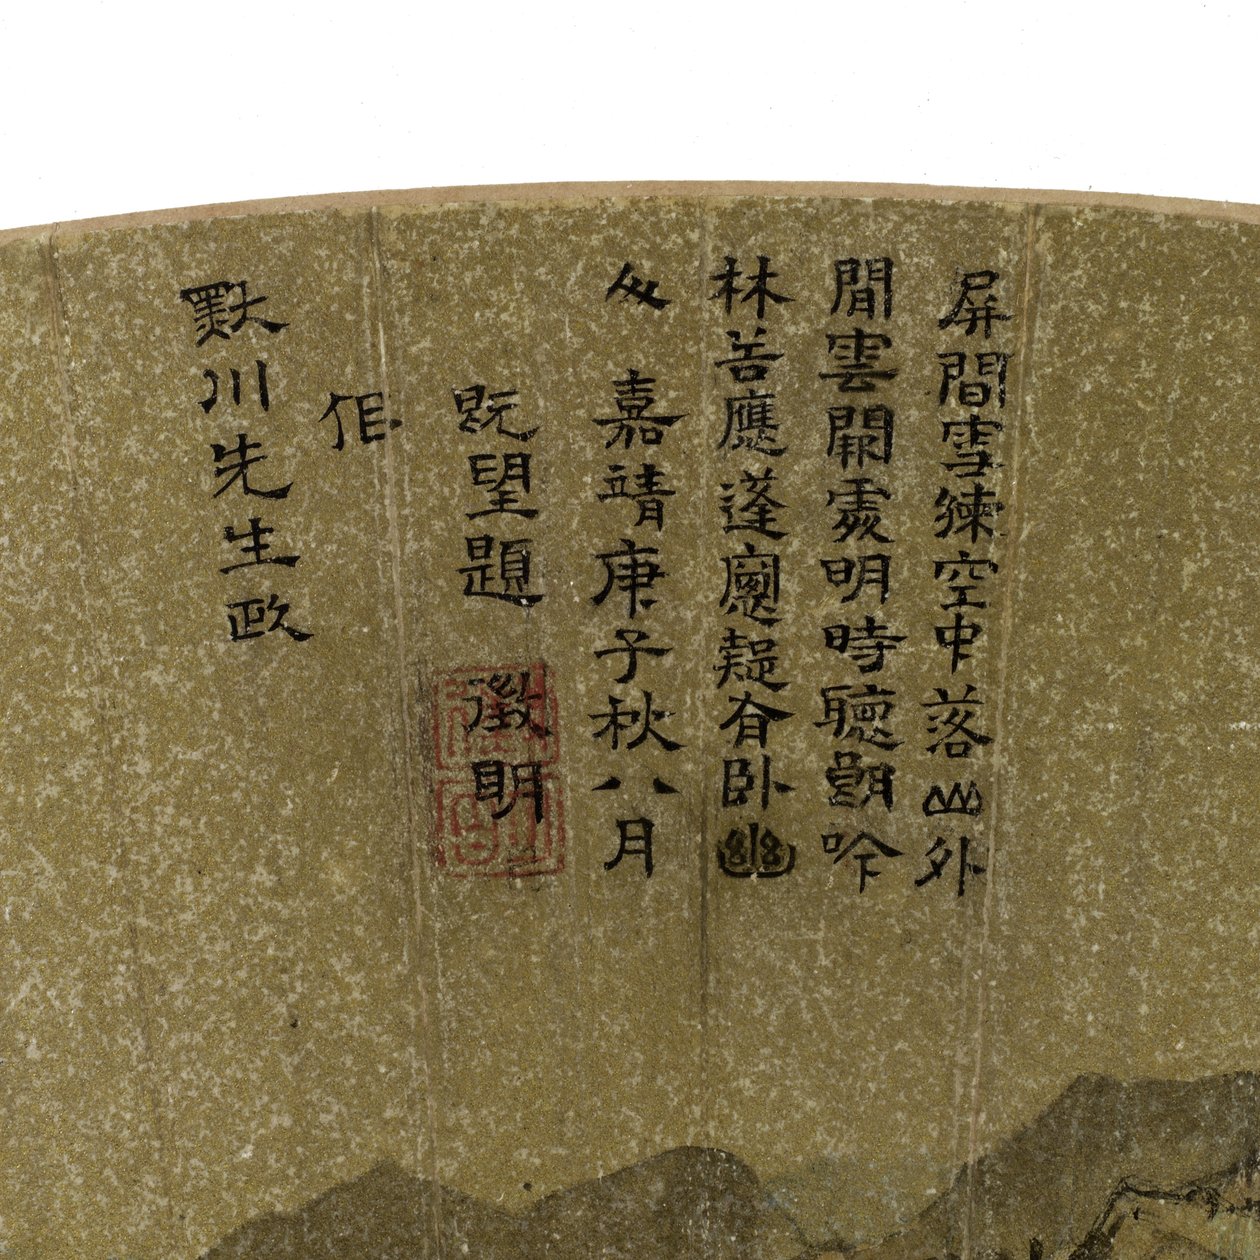 屏間雪練空中落山外
閒雲開處明時聽朗吟
林應蓬窻疑有卧幽
人 嘉靖庚子秋八月
既望題 徵明
作
默川先生政